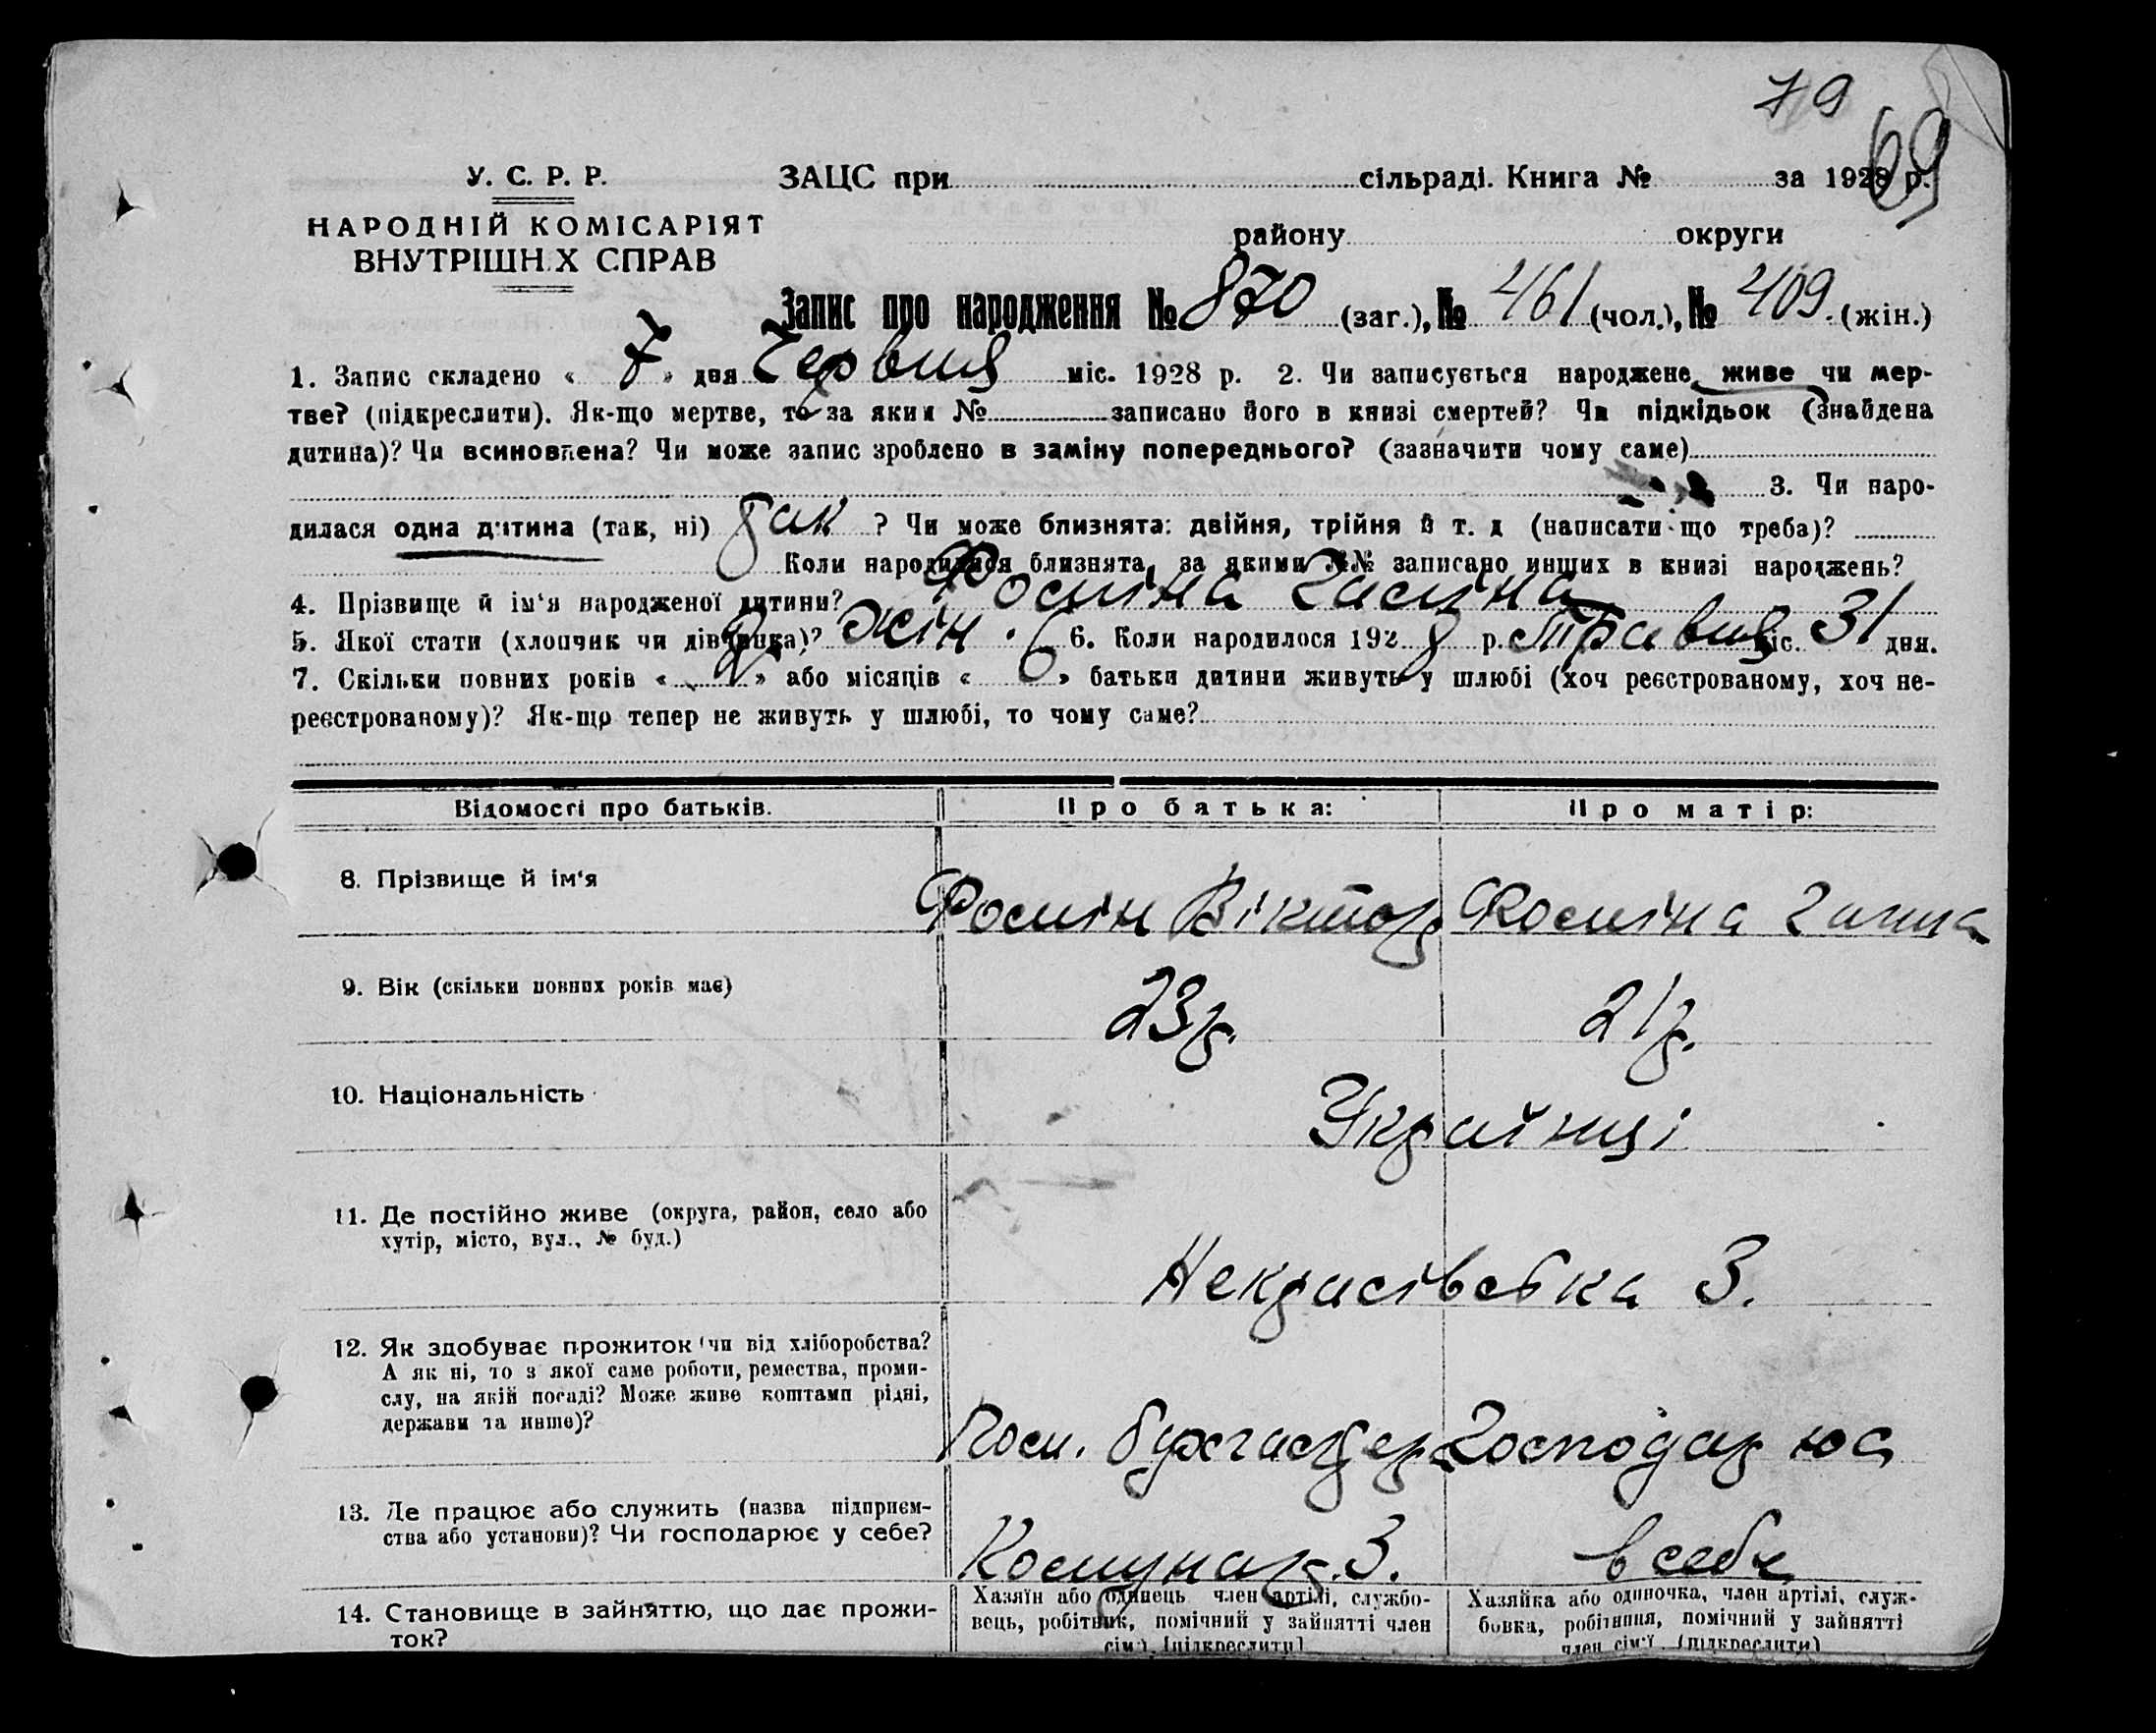 79
69
У. С. Р. Р.
НАРОДНІЙ КОМІСАРІЯТ
ВНУТРІШНІХ СПРАВ
ЗАЦС при сільраді. Книга № за 1928 р.
району округи
Запис про народження № 870 (заг.), № 461 (чол.), № 409. (жін.)
1. Запис складено « 7 » дня Червня міс. 1928 р. 2. Чи записується народжене живе чи мер-
тве? (підкреслити). Як-що мертве, то за яким № записано його в книзі смертей? Чи підкідьок (знайдена
дитина)? Чи всиновлена? Чи може запис зроблено в заміну попереднього? (зазначити чому саме)
3. Чи наро-
дилася одна дитина (так, ні) так ? Чи може близнята: двійня, трійня й т. д (написати що треба)?
Коли народилися близнята, за якими №№ записано инших в книзі народжень?
4. Прізвище й ім'я народженої дитини? Фоміна Галина
5. Якої стати (хлопчик чи дівчинка)? жін. 6. Коли народилося 1928 р. Травня міс. 31 дня.
7. Скільки повних років « » або місяців « 6 » батьки дитини живуть у шлюбі (хоч реєстрованому, хоч не-
реєстрованому)? Як-що тепер не живуть у шлюбі, то чому саме?
Відомості про батьків. Про батька: Про матір:
8. Прізвище й ім'я Фомін Віктор Фоміна Ганна
9. Вік (скільки повних років має) 23 р. 21 р.
10. Національність Українці
11. Де постійно живе (округа, район, село або
хутір, місто, вул., № буд.)
Некрасівська 3.
12. Як здобуває прожиток (чи від хліборобства?
А як ні, то з якої саме роботи, ремества, проми-
слу, на якій посаді? Може живе коштами рідні,
держави та инше)?
Пом. бухгалтер Господар юа
13. Де працює або служить (назва підприєм-
ства або установи)? Чи господарює у себе?
Комунар. 3. в себе
14. Становище в зайняттю, що дає прожи-
ток?
Хазяїн або одинець член артілі, службо-
вець, робітник, помічний у зайнятті член
сім'ї. [підкреслити]
Хазяйка або одиночка, член артілі, служ-
бовка, робітниця, помічний у зайнятті
член сім'ї. (підкреслити)